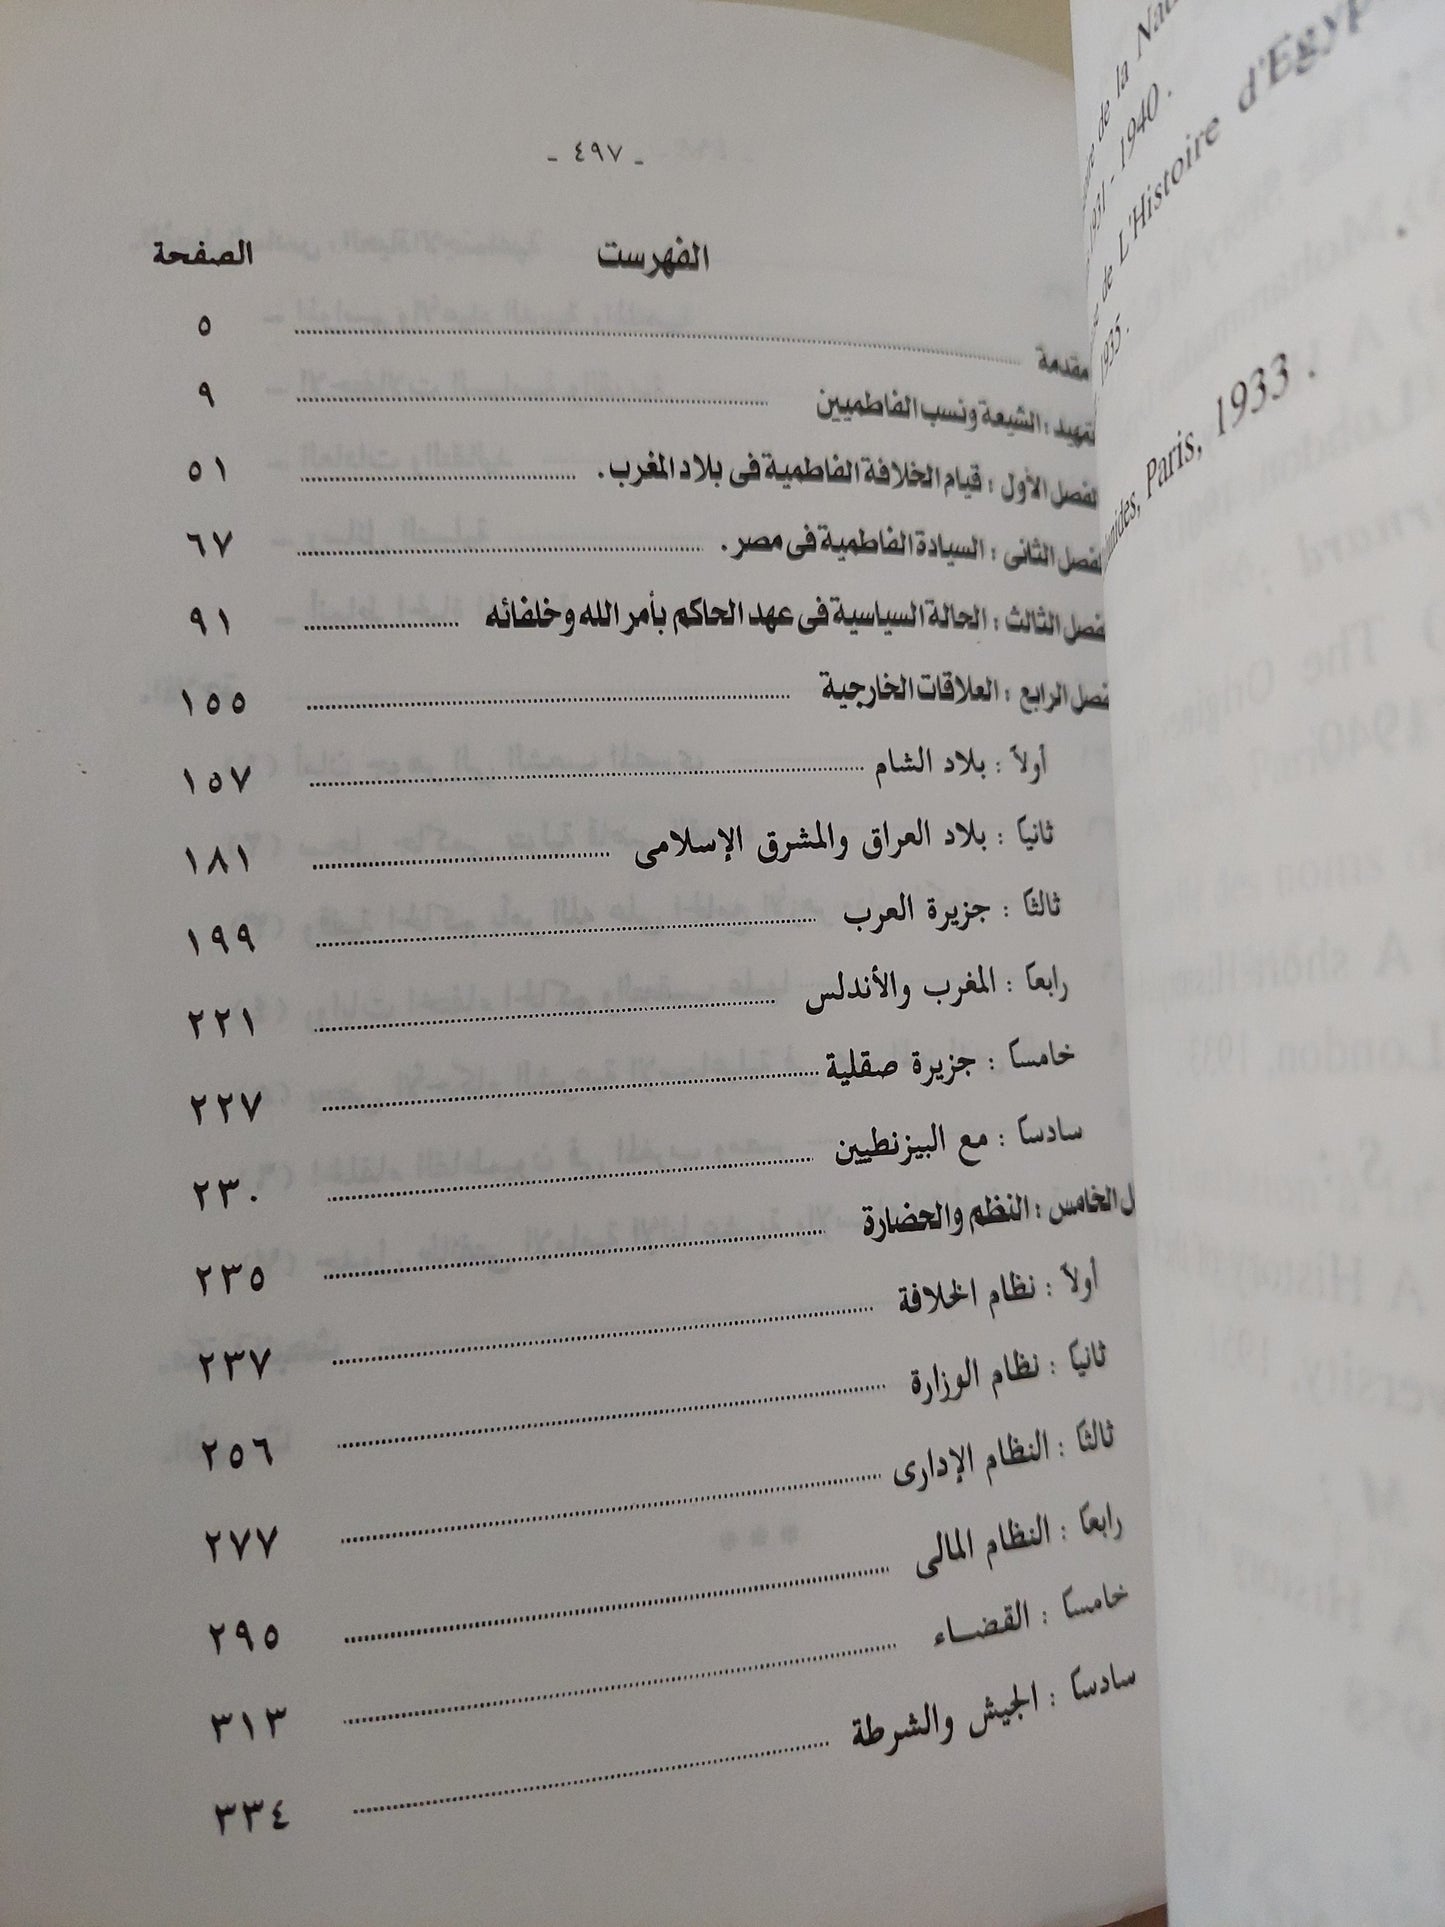 - ٤٩٧ -
الفهرست الصفحة
مقدمة ٥
تمهيد : الشيعة ونسب الفاطميين ٩
لفصل الأول : قيام الخلافة الفاطمية فى بلاد المغرب . ٥١
لفصل الثانى : السيادة الفاطمية فى مصر . ٦٧
فصل الثالث : الحالة السياسية فى عهد الحاكم بأمر الله وخلفائه ٩١
فصل الرابع : العلاقات الخارجية ١٥٥
أولاً : بلاد الشام ١٥٧
ثانيًا : بلاد العراق والمشرق الإسلامى ١٨١
ثالثًا : جزيرة العرب ١٩٩
رابعًا : المغرب والأندلس ٢٢١
خامسًا : جزيرة صقلية ٢٢٧
سادسًا : مع البيزنطيين ٢٣٠
ل الخامس : النظم والحضارة ٢٣٥
أولاً : نظام الخلافة ٢٣٧
ثانيًا : نظام الوزارة ٢٥٦
ثالثًا : النظام الإدارى ٢٧٧
رابعًا : النظام المالى ٢٩٥
خامسًا : القضاء ٣١٣
سادسًا : الجيش والشرطة ٣٣٤
de la
1931 - 1940 .
de L'Histoire d'Egyp
1935 .
Paris, 1933 .